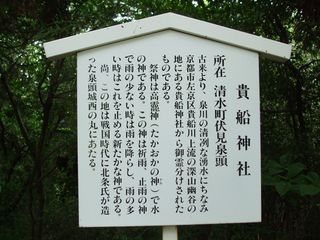 貴船神社
所在 清水町伏見泉頭
古来より、泉川の清冽な湧水にちなみ
京都市左京区貴船川上流の深山幽谷の
地にある貴船神社から御霊分けされた
ものである。
祭神は高靇神(たかおかの神)で水
の神である。この神は祈雨、止雨の神
で雨の少ない時は雨を降らし、雨の多
い時はこれを止める新たかな神である。
尚、この地は戦国時代に北条氏が造
った泉頭城西の丸にあたる。